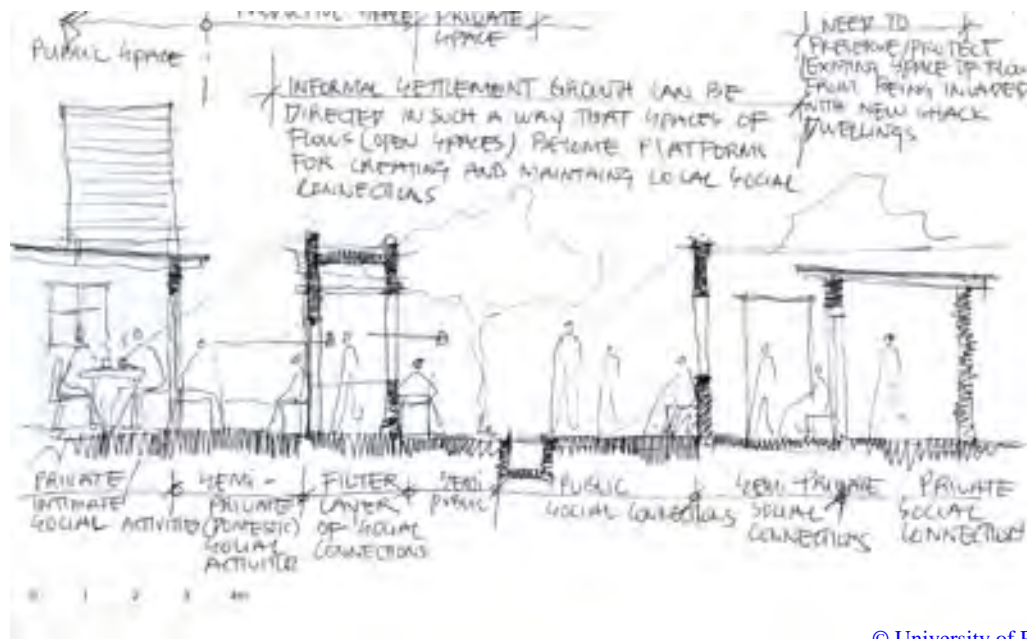 PUBLIC SPACE
PRIVATE
SPACE
NEED TO
PRESERVE/PROTECT
EXISTING SPACE OF FLOW
FROM BEING INVADED
WITH NEW SHACK
DWELLINGS
INFORMAL SETTLEMENT GROWTH CAN BE
DIRECTED IN SUCH A WAY THAT SPACES OF
FLOWS (OPEN SPACES) BECOME PLATFORMS
FOR CREATING AND MAINTAINING LOCAL SOCIAL
CONNECTIONS
PRIVATE
INTIMATE
SOCIAL ACTIVITIES
SEMI-
PRIVATE
(DOMESTIC)
SOCIAL
ACTIVITIES
FILTER
LAYER
OF SOCIAL
CONNECTIONS
SEMI
PUBLIC
PUBLIC
SOCIAL CONNECTIONS
SEMI-PRIVATE
SOCIAL
CONNECTIONS
PRIVATE
SOCIAL
CONNECTIONS
0 1 2 3 4m
© University of